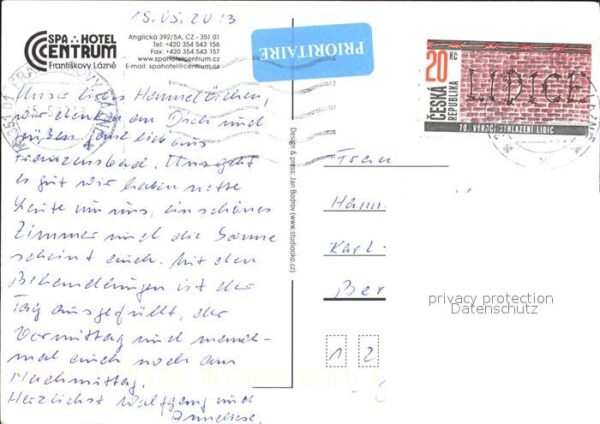 15.05.2013
SPA ∴ HOTEL
CENTRUM
Františkovy Lázně
Anglická 392/5A, CZ - 351 01
Tel: +420 354 543 156
Fax: +420 354 543 157
www.spahotelcentrum.cz
E-mail: spahotel@centrum.cz
PRIORITAIRE
20 KČ
ČESKÁ
REPUBLIKA
LIDICE
70. VÝROČÍ VYHLAZENÍ LIDIC
Unser liebes Hannelörchen,
wir denken an Dich und
grüßen ganz lieb aus
Franzensbad. Uns geht
es gut wir haben nette
Leute um uns, ein schönes
Zimmer und die Sonne
scheint auch. Mit den
Behandlungen ist der
Tag ausgefüllt, der
Vormittag und manch-
mal auch noch am
Nachmittag.
Herzlichst Wolfgang und
Annelise.
Design & press: Jan Budrov (www.studiooko.cz)
Frau
Hann
Karl-
Ber
1 2
privacy protection
Datenschutz